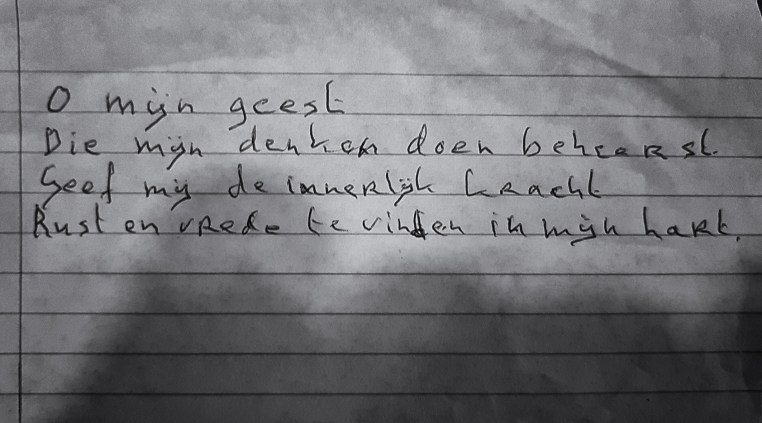 O mijn geest
Die mijn denken doen beheerst.
Geef mij de innerlijk kracht
Rust en vrede te vinden in mijn hart.